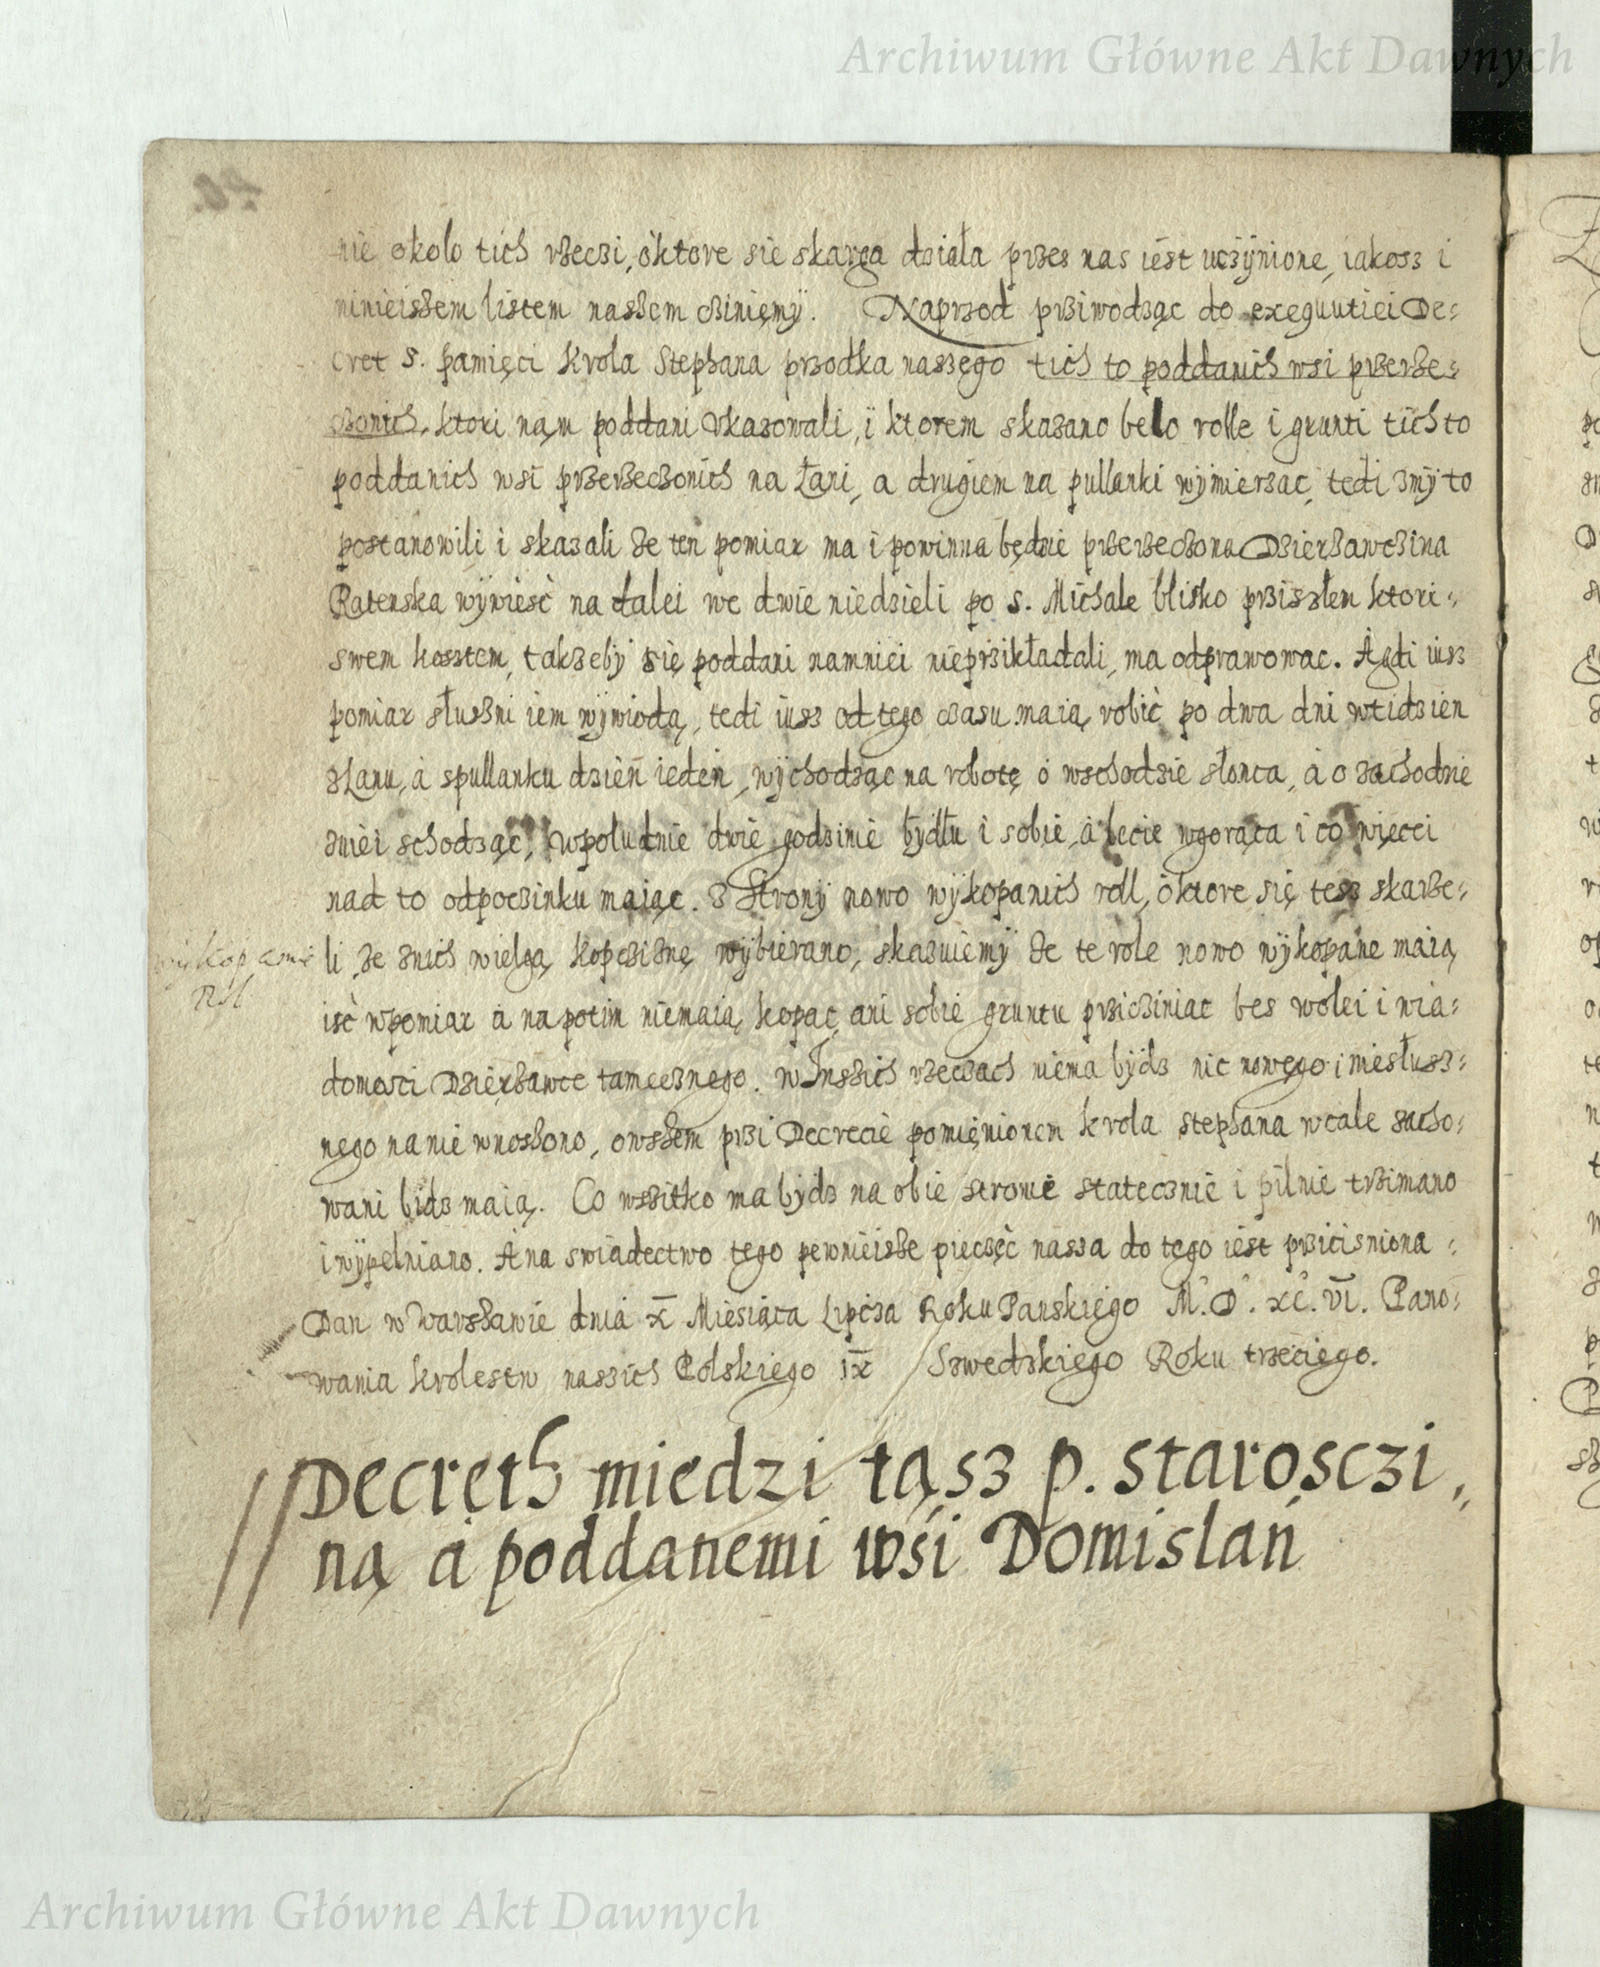 Archiwum Główne Akt Dawnych
nie okolo tich rzeczi, o ktore sie skarga dziala przes nas iest uczÿnione, iakosz i
ninieiszem listem naszem cziniemÿ. Naprzod prziwodząc do exequutiei De=
cret S. pamięci Krola Stephana przodka naszego tich to poddanich wsi przerze=
czonich, ktori nąm poddani vkazowali, i ktorem skazano belo rolle i grunti tich to
poddanich wsi przerzeczonich na Łani, a drugiem na pullanki wÿmierzac, tedi zmÿ to
postanowili i skazali ze ten pomiar ma i powinna będzie przerzeczona Dzierzawczina
Ratenska wÿwiesć na dalei we dwie niedzieli po S. Michale blisko prziszłem ktori=
swem kosztem, takzebÿ się poddani namniei nieprzikładali, ma odprawowac. A gdi iusz
pomiar słuszni iem wÿwiodą, tedi iusz od tego czasu maią robić po dwa dni w tidzien
z Lanu, a s pullanku dzień ieden, wÿchodząc na robotę o wschodzie słonca, a o zachodzie
zniei schodząc, w poludnie dwie godzinie bÿdłu i sobie, a lecie w gorąca i co więcei
nad to odpoczinku maiąc. Z Stronÿ nowo wÿkopanich roll, o ktore się tesz skarze=
wÿkopanie
Ról
li, ze znich wielgą kopcziznę wÿbierano, skazuiemÿ ze te role nowo wÿkopane maią
isć w pomiar a na potim niemaią kopac ani sobie gruntu prziciniac bes wolei i wia=
domosci Dzierzawce tamecznego. w Inszich rzeczach niema bÿdz nic nowego i niesłusz=
nego na nie wnoszono, owszem przi Decrecie pomięnionem krola Stephana wcale zacho=
wani bidz maią. Co wszitko ma bÿdz na obie stronie statecznie i pilnie trzimano
i wÿpelniano. A na swiadectwo tego pewnieisze pieczęć nasza do tego iest przicisniona
Dan w Warszawie dnia X Miesiąca Lipcza Roku Panskiego M.D.XC.VI. Pano=
wania krolestw naszich Polskiego IX Szwedzkiego Roku trzeciego.
Decreth miedzi tąsz p. starosczi„
ną a poddanemi wsi Domislań
Archiwum Główne Akt Dawnych